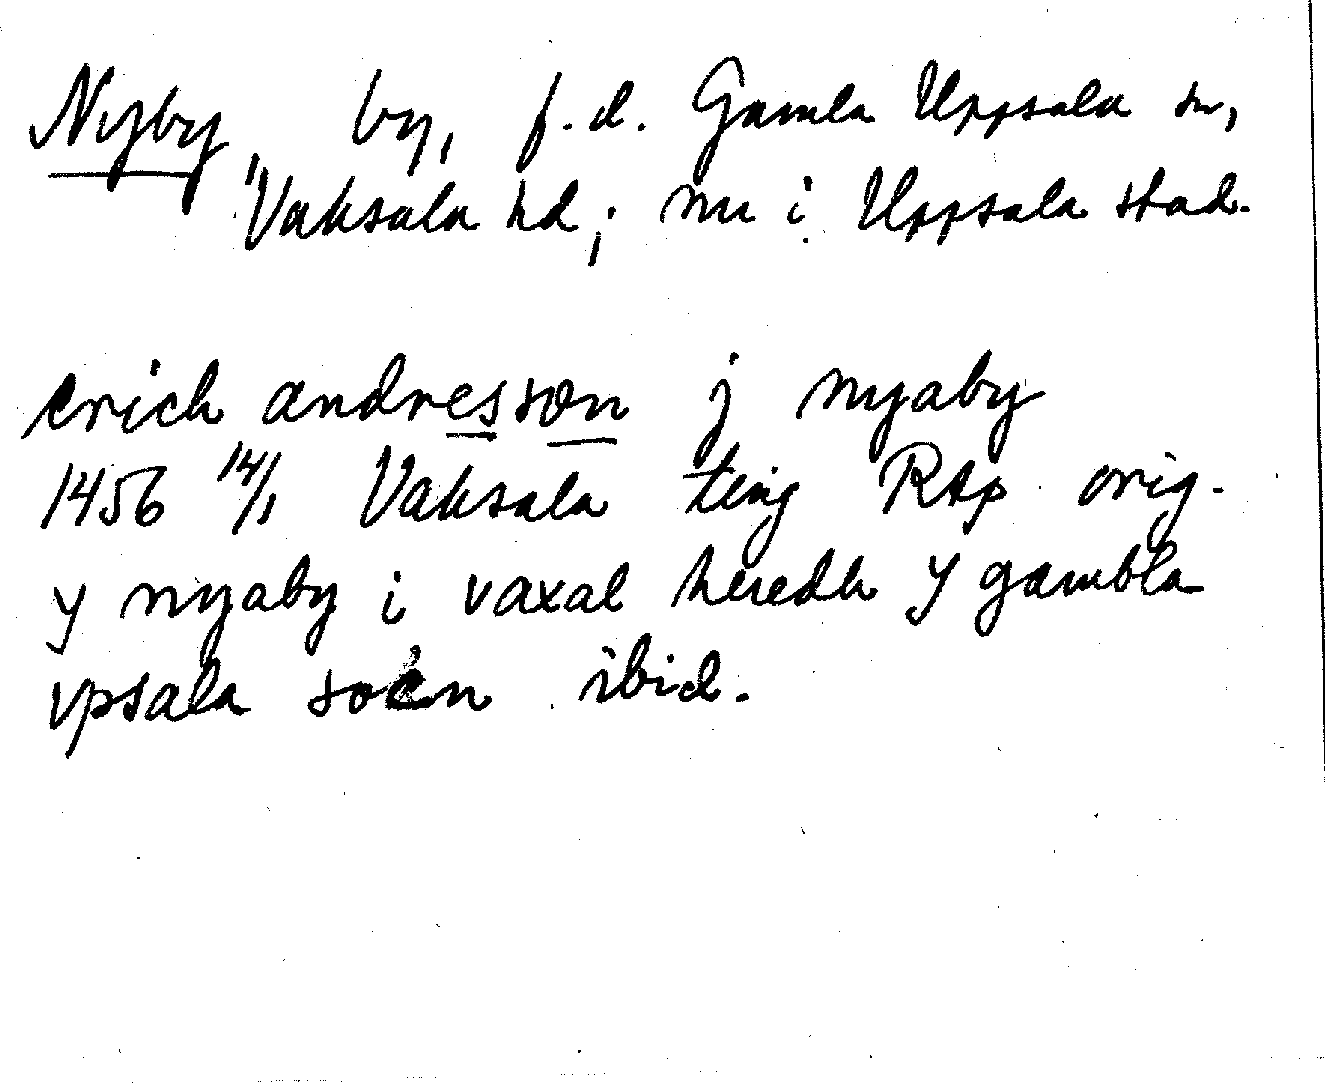 Nyby, by, f.d. Gamla Uppsala sn,
Vaksala hd; nu i Uppsala stad.
erich andresson j nyaby
1456 14/1 Vaksala ting RAp orig.
y nyaby i vaxal heredh y gambla
vpsala socn ibid.